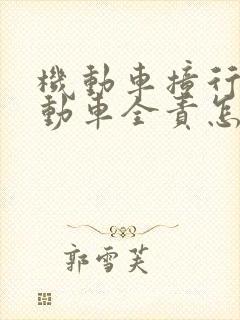 機動車撞行
動車全責怎
郭雪芙